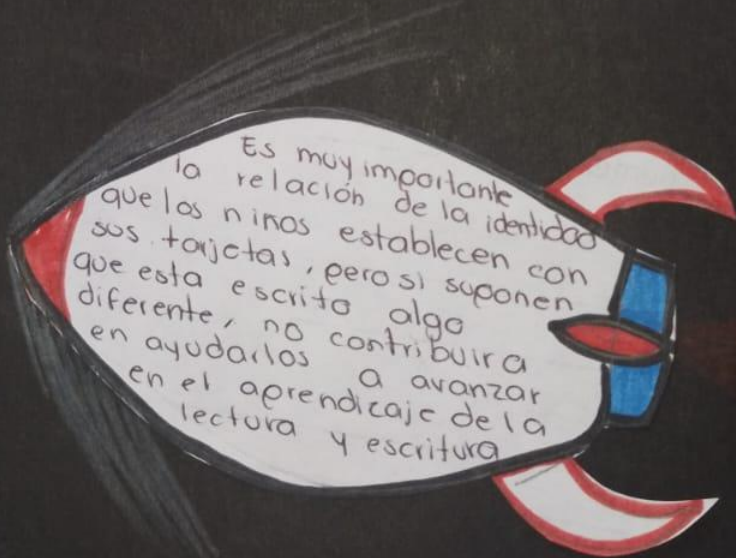 Es muy importante
la relación de la identidad
que los ninos establecen con
sus tarjetas, pero si suponen
que esta escrito algo
diferente, no contribuira
en ayudarlos a avanzar
en el aprendizaje de la
lectura y escritura